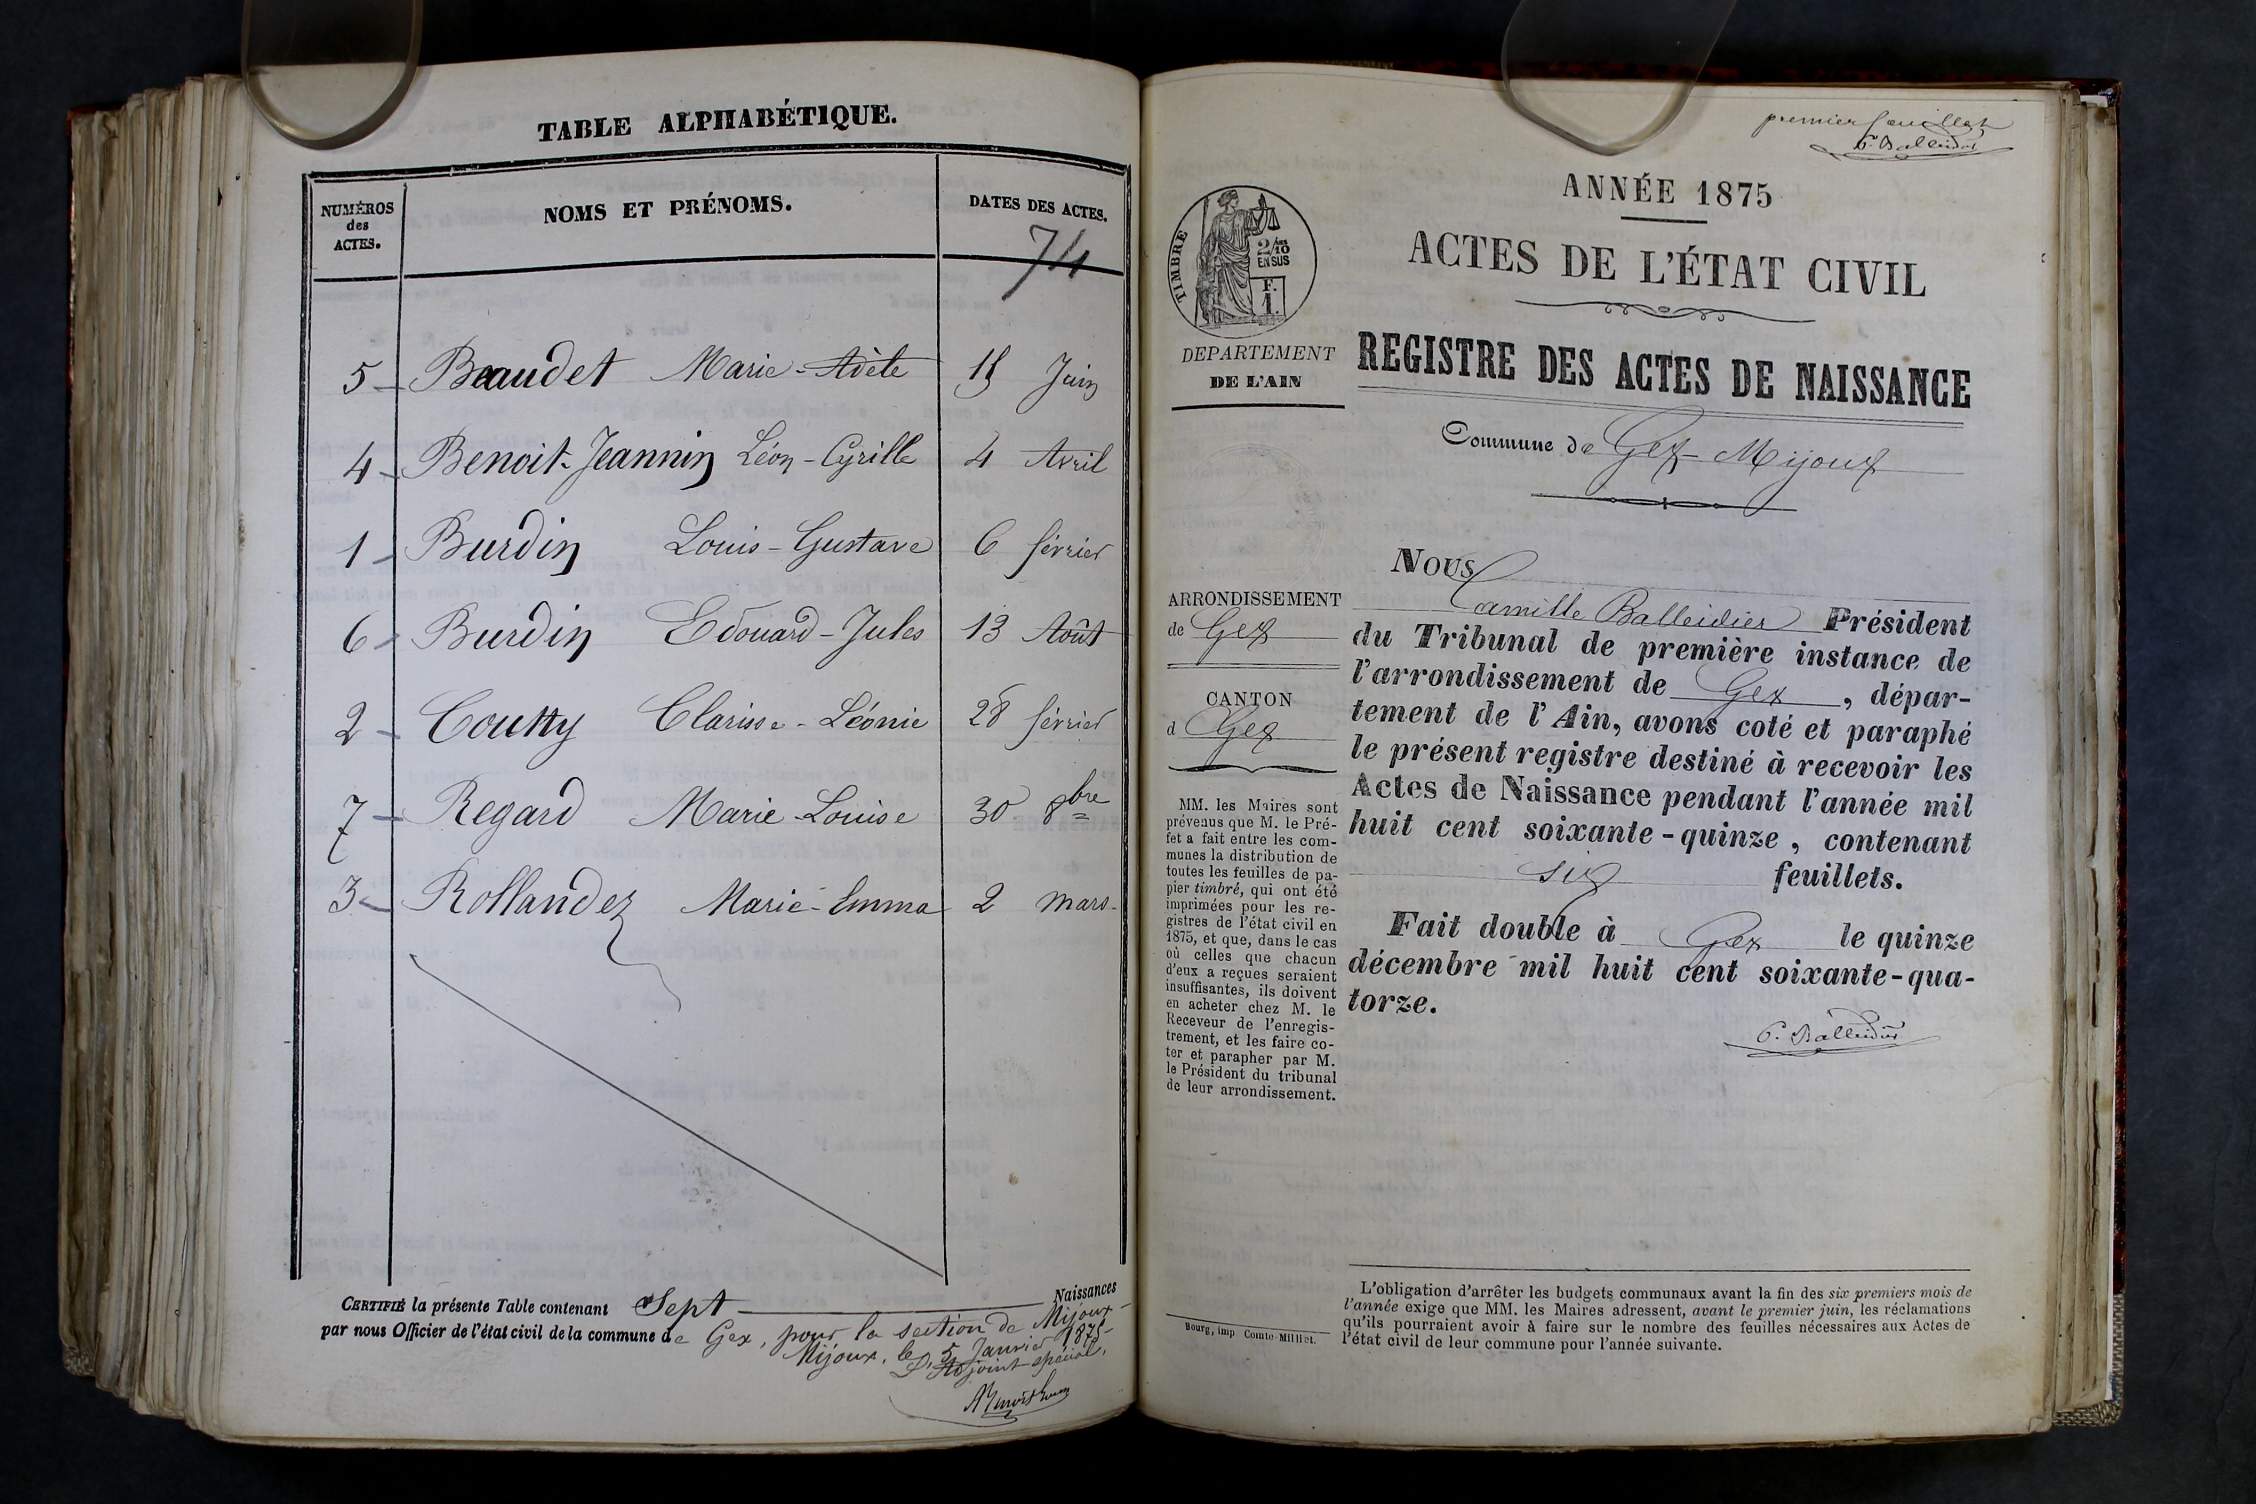 TABLE ALPHABÉTIQUE.
NUMÉROS des ACTES.
NOMS ET PRÉNOMS.
DATES DES ACTES.
74
5 - Beaudet Marie-Adèle 15 Juin
4 - Benoit-Jeannin Léon-Cyrille 4 Avril
1 - Burdin Louis-Gustave 6 février
6 - Burdin Edouard-Jules 13 Août
2 - Coutty Clarisse-Léonie 28 février
7 - Regard Marie-Louise 30 8bre
3 - Rollandez Marie-Emma 2 mars
CERTIFIÉ la présente Table contenant Sept Naissances
par nous Officier de l'état civil de la commune de Gex, pour la section de Mijoux
Mijoux, le 5 Janvier 1875
L'Adjoint spécial,
premier feuillet
C. Balleidier
ANNÉE 1875
ACTES DE L'ÉTAT CIVIL
TIMBRE
2/10 EN SUS
F. 1.
DEPARTEMENT
DE L'AIN
REGISTRE DES ACTES DE NAISSANCE
Commune de Gex-Mijoux
ARRONDISSEMENT
de Gex
CANTON
d Gex
MM. les Maires sont
prévenus que M. le Pré-
fet a fait entre les com-
munes la distribution de
toutes les feuilles de pa-
pier timbré, qui ont été
imprimées pour les re-
gistres de l'état civil en
1875, et que, dans le cas
où celles que chacun
d'eux a reçues seraient
insuffisantes, ils doivent
en acheter chez M. le
Receveur de l'enregis-
trement, et les faire co-
ter et parapher par M.
le Président du tribunal
de leur arrondissement.
NOUS
Camille Balleidier Président
du Tribunal de première instance de
l'arrondissement de Gex, dépar-
tement de l'Ain, avons coté et paraphé
le présent registre destiné à recevoir les
Actes de Naissance pendant l'année mil
huit cent soixante-quinze, contenant
six feuillets.
Fait double à Gex le quinze
décembre mil huit cent soixante-qua-
torze.
C. Balleidier
Bourg, imp Comte-Milliet.
L'obligation d'arrêter les budgets communaux avant la fin des six premiers mois de
l'année exige que MM. les Maires adressent, avant le premier juin, les réclamations
qu'ils pourraient avoir à faire sur le nombre des feuilles nécessaires aux Actes de
l'état civil de leur commune pour l'année suivante.